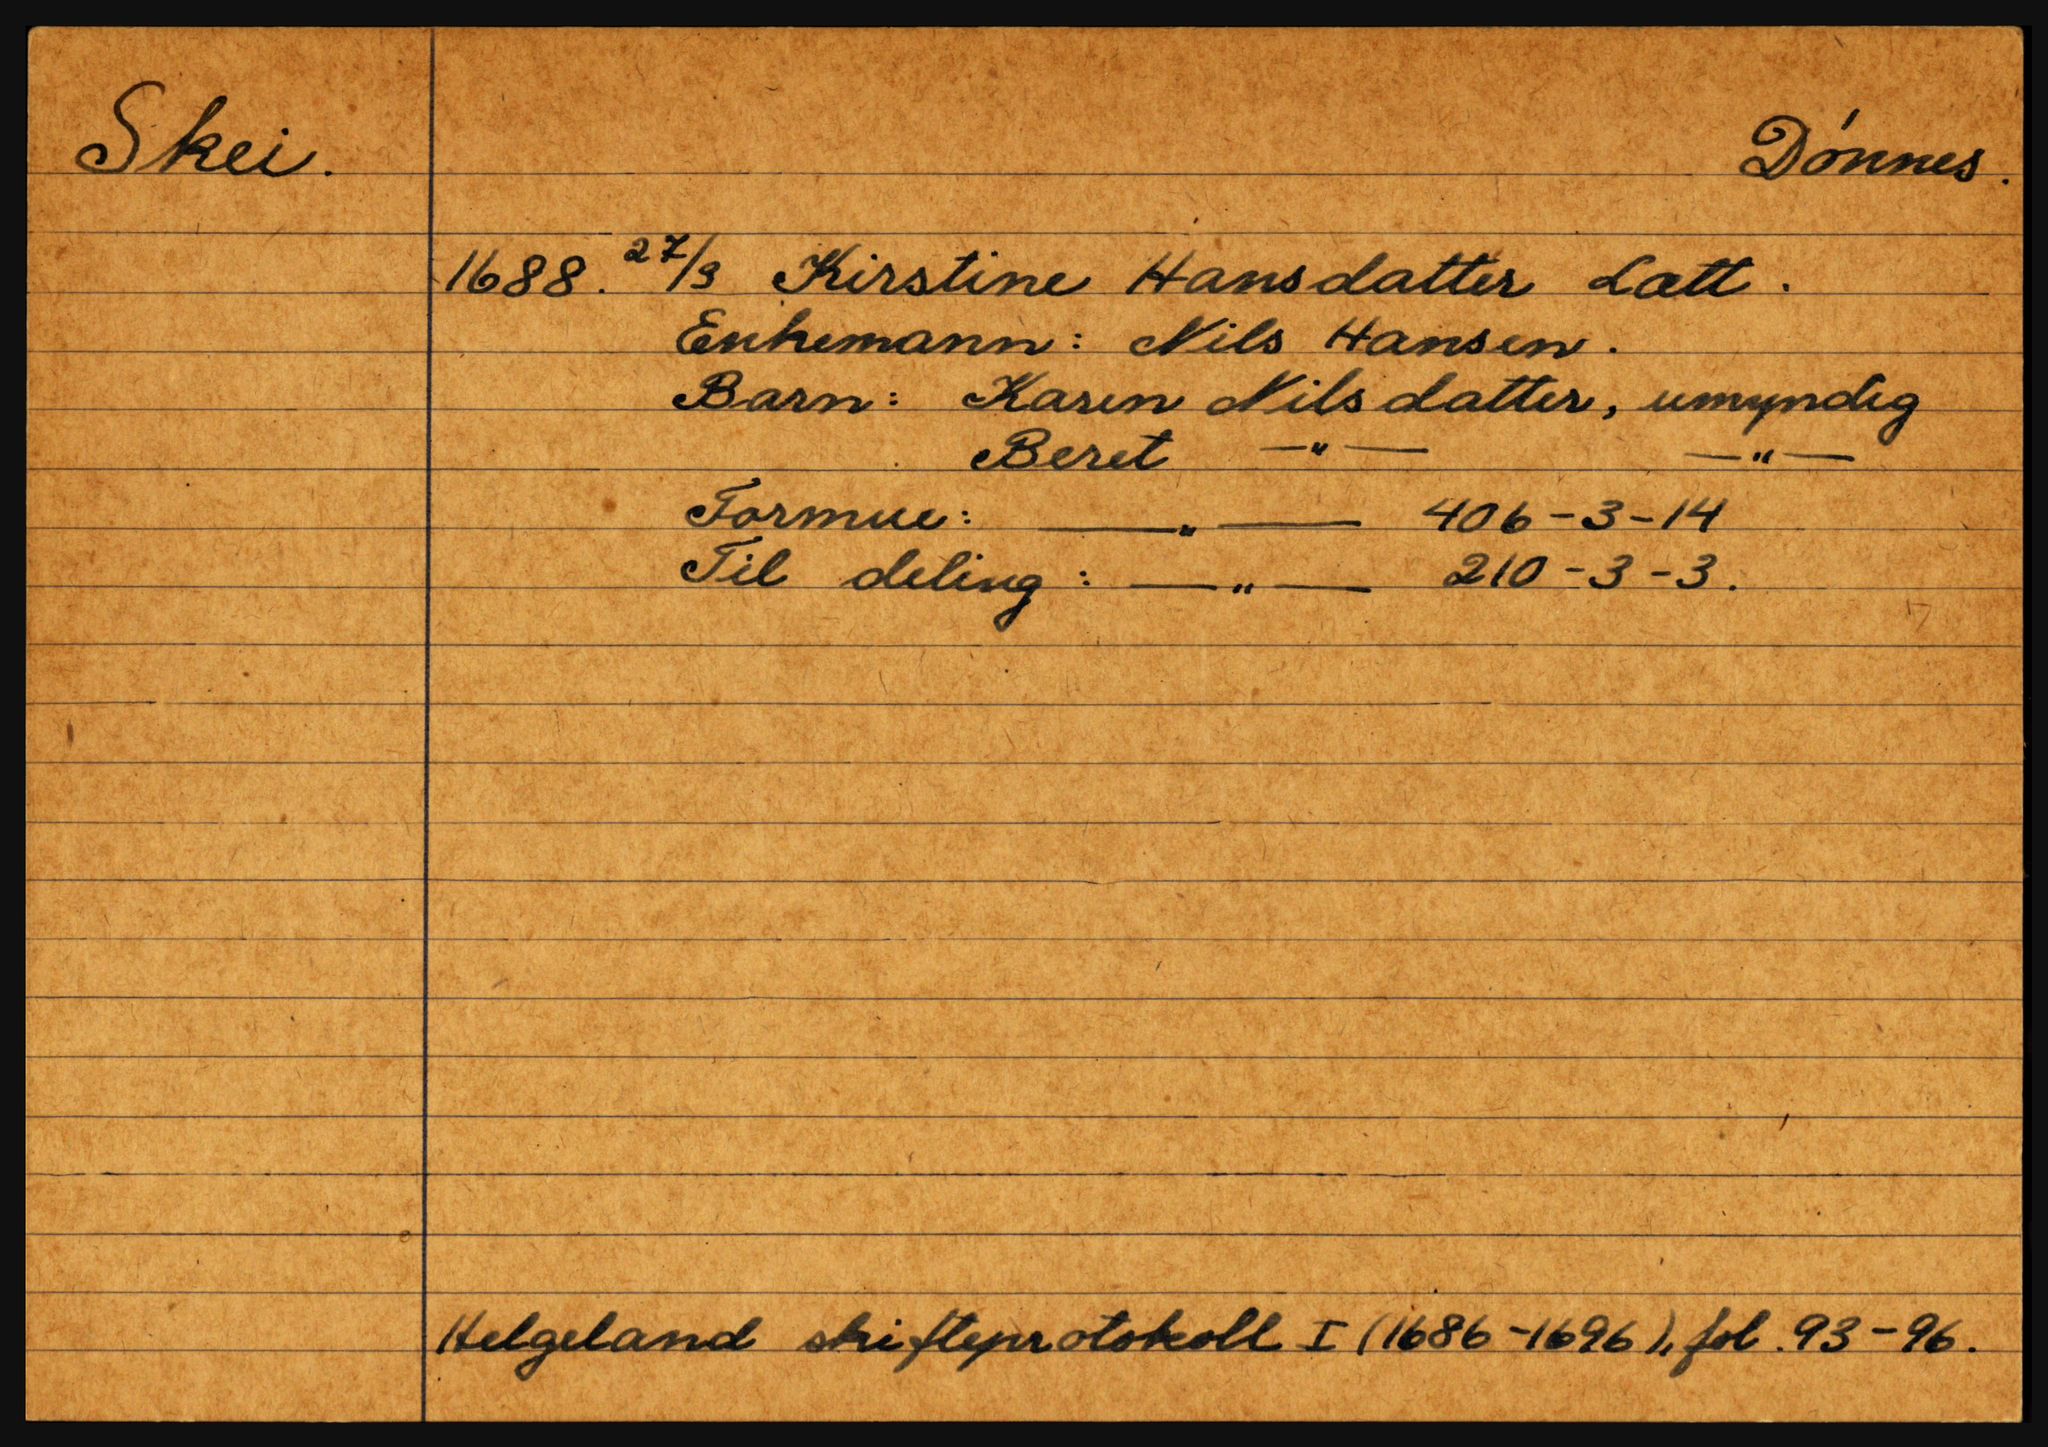 Skei.
Dónnes.
1688. 27/3 Kirstine Hansdatter Latt.
Enkemann: Nils Hansen.
Barn: Karen Nilsdatter, umyndig
Beret —"— —"—
Formue: —"— 406-3-14
Til deling: —"— 210-3-3.
Helgeland skifteprotokoll I (1686-1696), fol. 93-96.